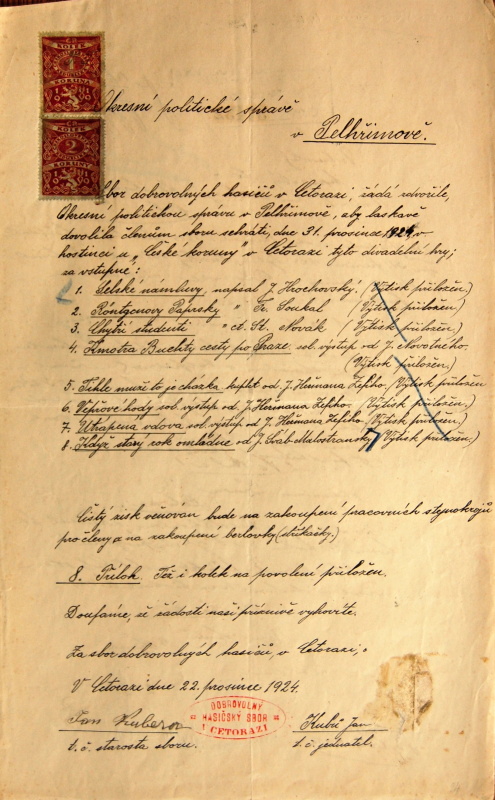 KOLEK
1
KORUNA
KOLEK
2
KORUNY
Okresní politické správě
v Pelhřimově.
Sbor dobrovolných hasičů v Cetorazi, žádá zdvořile,
Okresní politickou správu v Pelhřimově, aby laskavě
dovolila členům sboru sehráti, dne 31. prosince 1924 v
hostinci u „České koruny" v Cetorazi tyto divadelní hry;
za vstupné:
1. Selské namluvy, napsal J. Hrochovský. (Výtisk přiložen.)
2. Röntgenovy Paprsky " Fr. Soukal (Výtisk přiložen.)
3. Chytří studenti " ct. St. Novák (Výtisk přiložen.)
4. Kmotra Buchty cesty po Praze. sol. výstup od J. Novotného.
(Výtisk přiložen.)
5. Tuhle muže to je cházka kuplet od J. Heřmana Zefiho, (Výtisk přiložen
6. Vepřové hody sol. výstup od J. Heřmana Zefiho, (Výtisk přiložen.)
7. Utrápená vdova sol. výstup od J. Heřmana Zefiho. (Výtisk přiložen.)
8. Když starý rok omládne od J. Šváb-Malostranský (Výtisk přiložen.)
Čistý zisk věnován bude na zakoupení pracovních stejnokrojů
pro členy a na zakoupení berlovky (stříkačky.)
8. Příloh. Též i kolek na povolení přiložen.
Doufáme, že žádosti naší příznivě vyhovíte.
Za sbor dobrovolných hasičů, v Cetorazi;
V Cetorazi dne 22. prosince 1924.
DOBROVOLNÝ
HASIČSKÝ SBOR
V CETORAZI
Jan Kubů Jan
t. č. starosta sboru. t. č. jednatel.